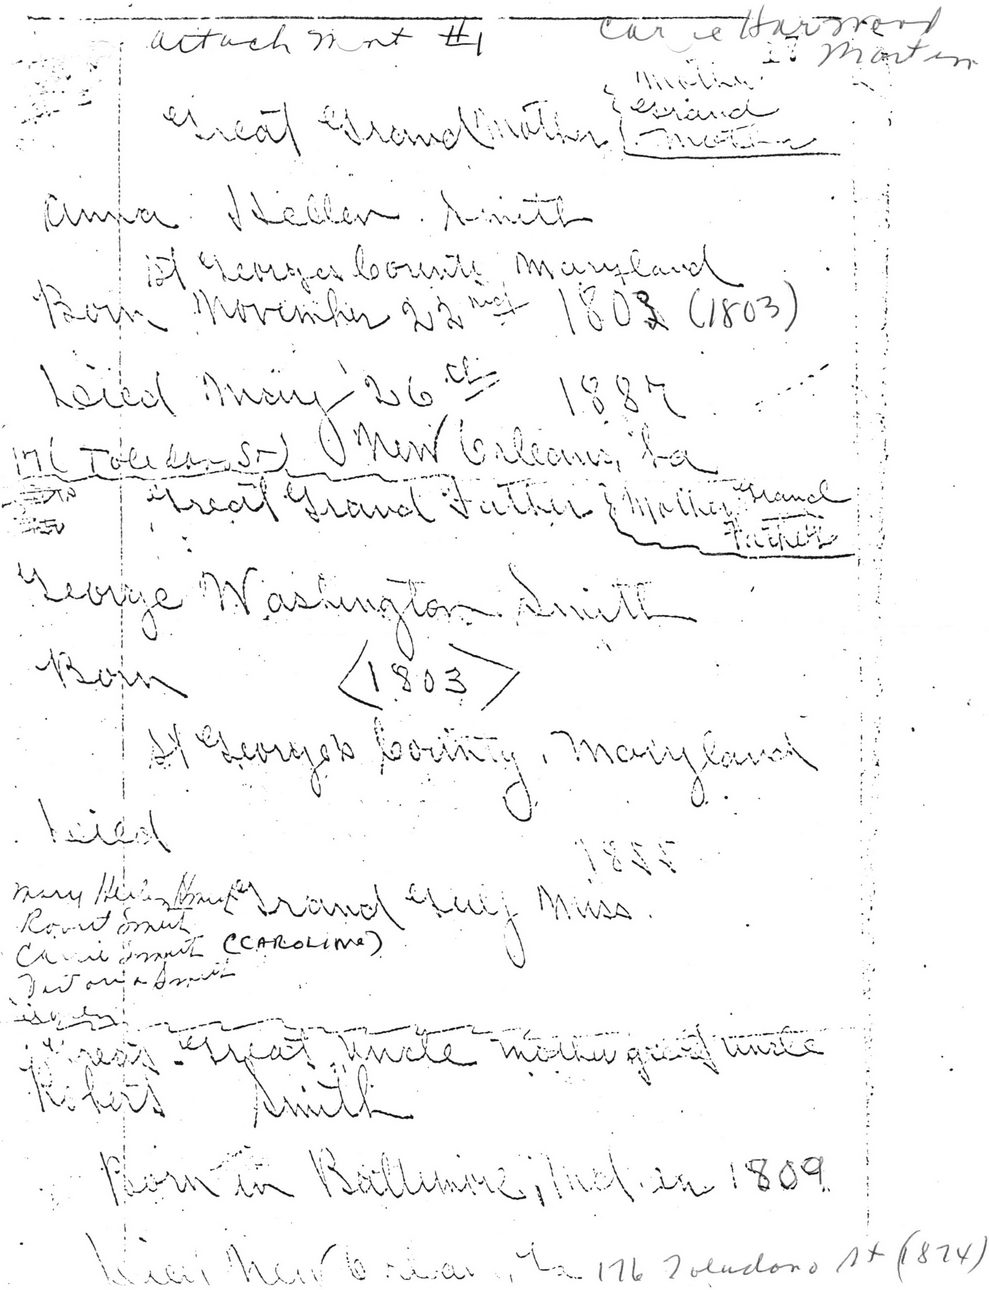 Attach Mnt #1
Carie Harwood
Martin
Great Grand Mother { Mother
Grand
Mother
Anna Hellen Smith
St Georges County Maryland
Born November 22nd 1803 (1803)
Died May 26th 1887
New Orleans, La
Great Grand Father { Mother Grand
Father
George Washington Smith
Born <1803>
St George's County, Maryland
Died
1855
Grand Gulf Miss.
Mary Hellen Smith
Robert Smith
Carrie Smith (CAROLINE)
Victoria Smith
Great-Great Uncle Mother great uncle
Roberts Smith
Born in Baltimore, Md. in 1809
Died New Orleans, La 176 Toledano St (1874)